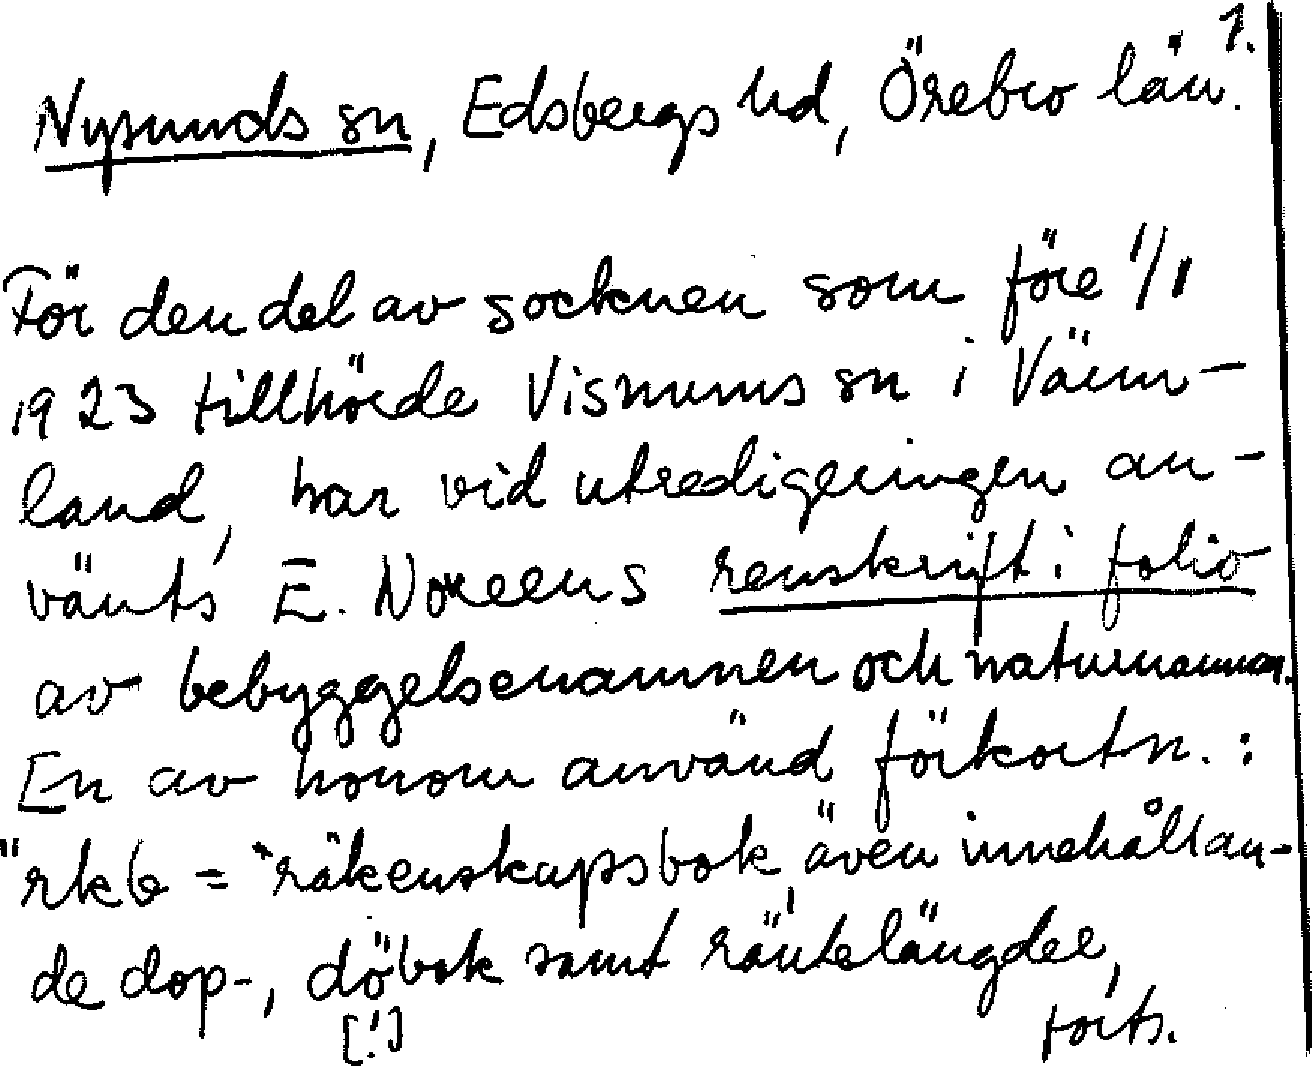 1.
Nysunds sn, Edsbergs hd, Örebro län.
För den del av socknen som före 1/1
1923 tillhörde Visnums sn i Värm-
land, har vid utredigeringen an-
vänts E. Noreens renskrift i folio
av bebyggelsenamnen och naturnamnen.
En av honom använd förkortn. :
"rkb = räkenskapsbok, även innehållan-
de dop-, döbok samt räntelängder,
[!] forts.